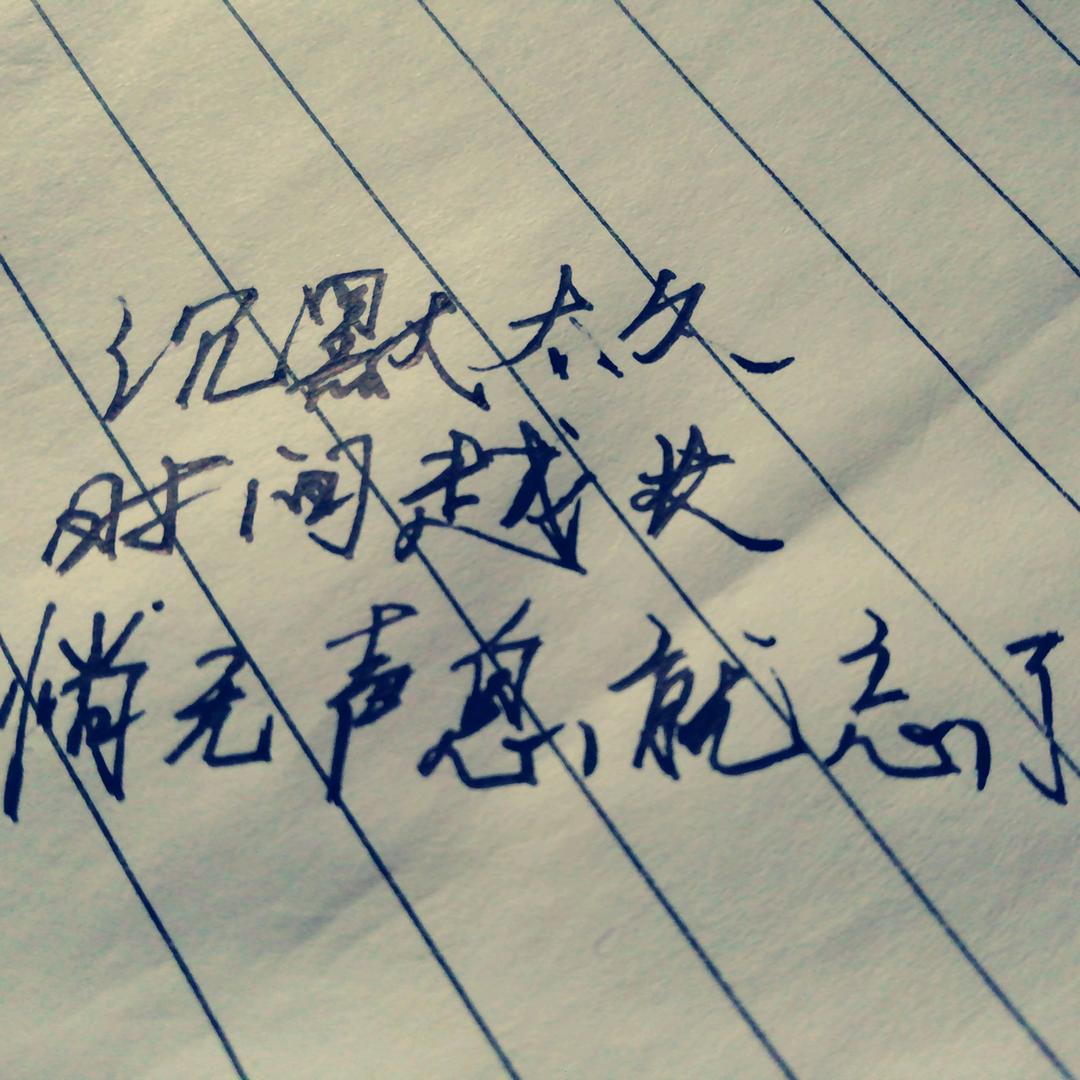 沉默太久
时间越长
悄无声息就忘了